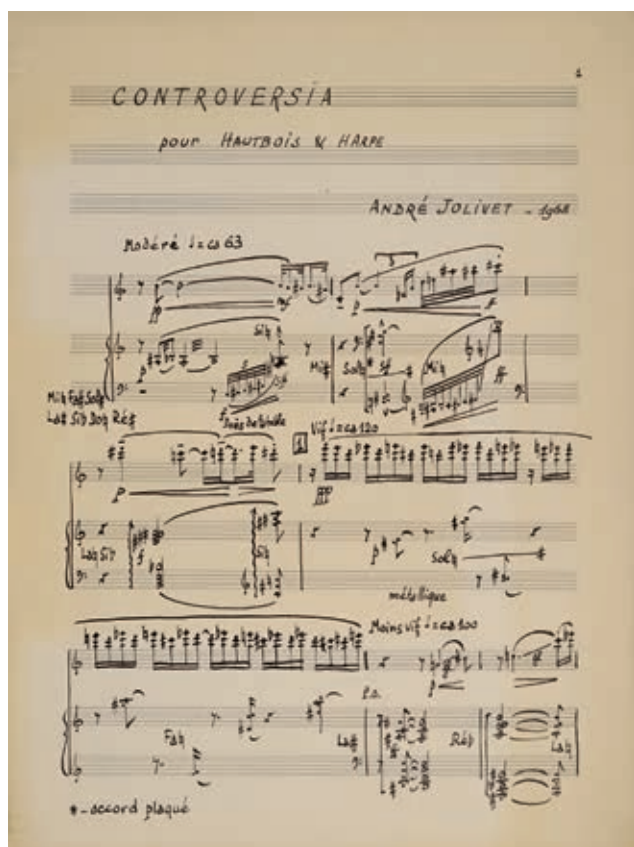 1
CONTROVERSIA
pour HAUTBOIS & HARPE
ANDRÉ JOLIVET - 1968
Modéré ♩=ca 63
pp mf p ff
Si♮
Mi♯ Sol♮ Sf Mi♮
Mi♮ Fa♯ Sol♮
La♯ Si♭ Do♮ Ré♯
f ff
1 Vif ♩=ca 120
p pp
La♮ Si♭ f Si♮ p Sol♮
métallique
Moins vif ♩=ca 100
p
Fa♮ La♯ Ré♮
* - accord plaqué